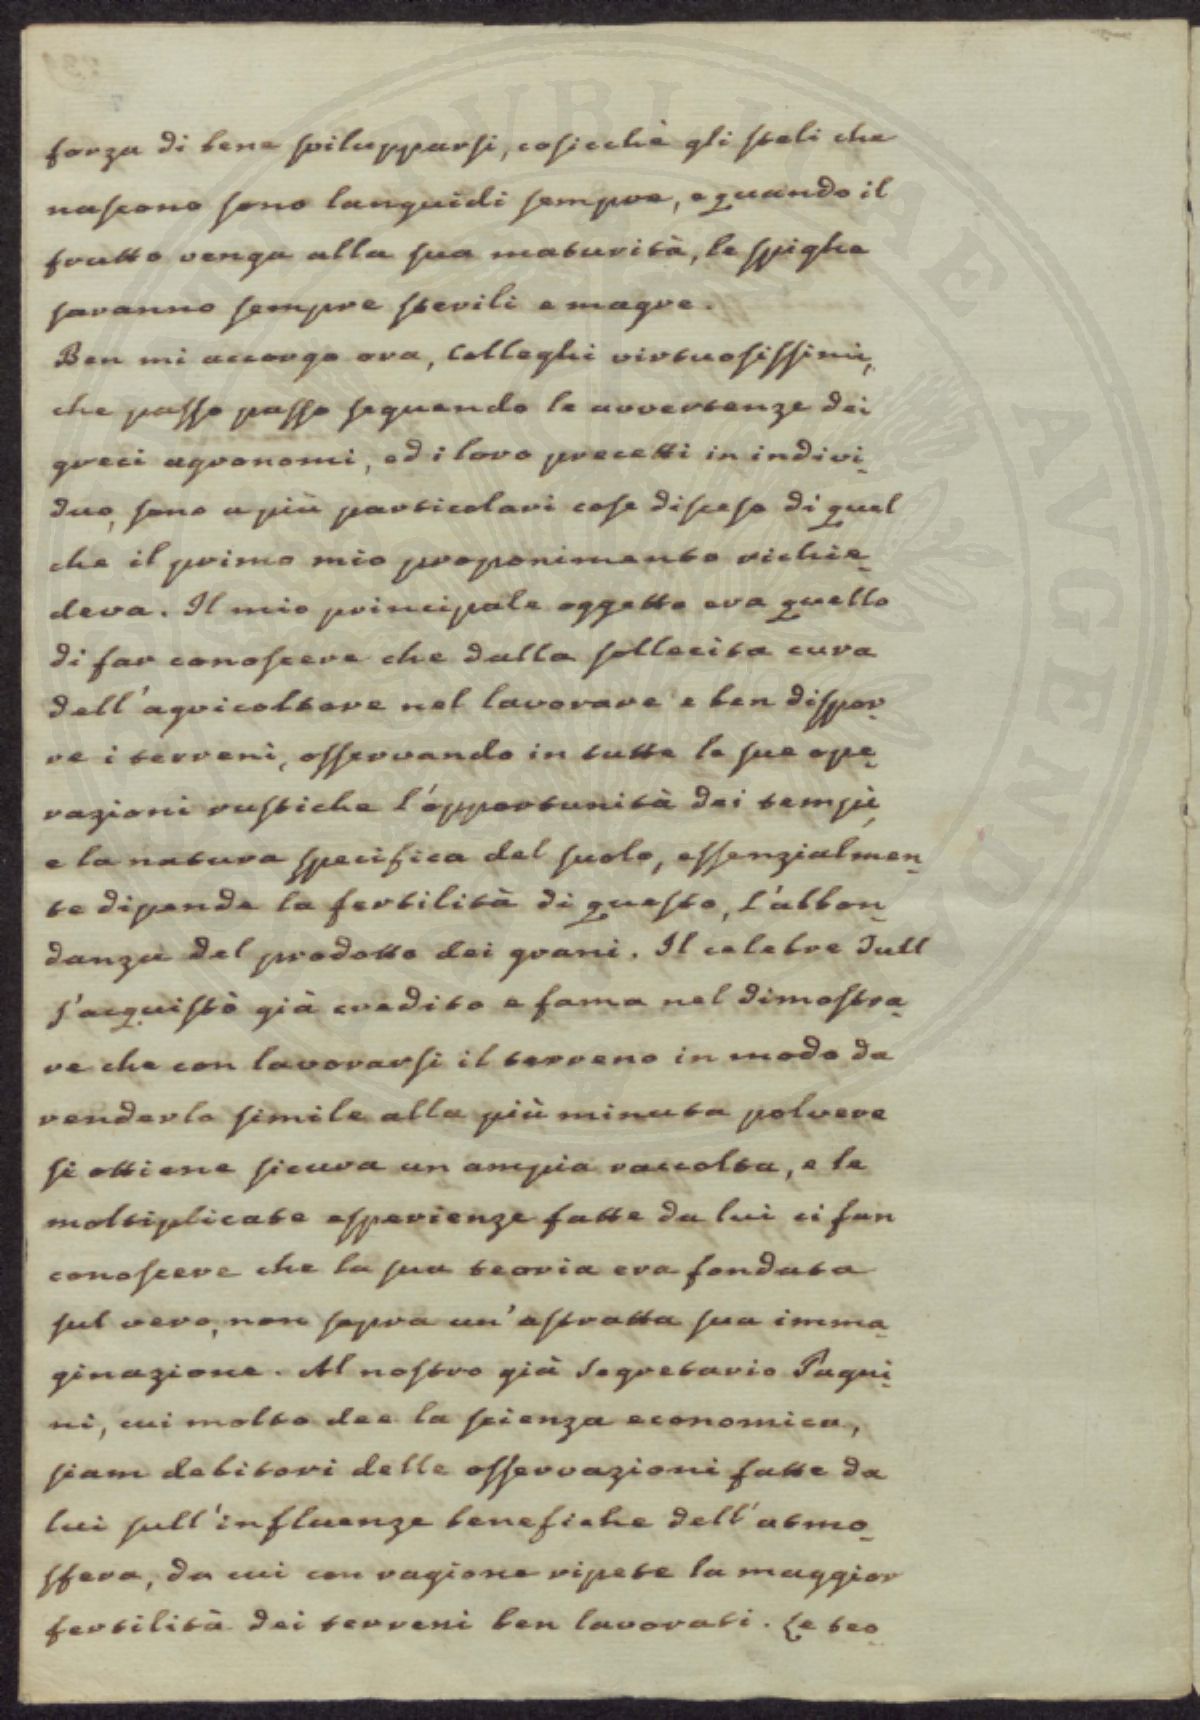 forza di bene svilupparsi, cosicchè gli steli che
nascono sono languidi sempre, e quando il
frutto venga alla sua maturità, le spighe
saranno sempre sterili e magre.
Ben mi accorgo ora, Colleghi virtuosissimi,
che passo passo seguendo le avvertenze dei
greci agronomi, ed i loro precetti in indivi-
duo, sono a più particolari cose disceso di quel
che il primo mio proponimento richie-
deva. Il mio principale oggetto era quello
di far conoscere che dalla sollecita cura
dell'agricoltore nel lavorare e ben dispor-
re i terreni, osservando in tutte le sue ope-
razioni rustiche l'opportunità dei tempi,
e la natura specifica del suolo, essenzialmen-
te dipende la fertilità di questo, l'abbon-
danza del prodotto dei grani. Il celebre Tull
s'acquistò già credito e fama nel dimostra-
re che con lavorarsi il terreno in modo da
renderlo simile alla più minuta polvere
si ottiene sicura un ampia raccolta, e le
moltiplicate esperienze fatte da lui ci fan
conoscere che la sua teoria era fondata
sul vero, non sopra un'astratta sua imma-
ginazione. Al nostro già Segretario Pagni-
ni, cui molto dee la scienza economica,
siam debitori delle osservazioni fatte da
lui sull'influenze benefiche dell'atmo-
sfera, da cui con ragione ripete la maggior
fertilità dei terreni ben lavorati. Le teo-